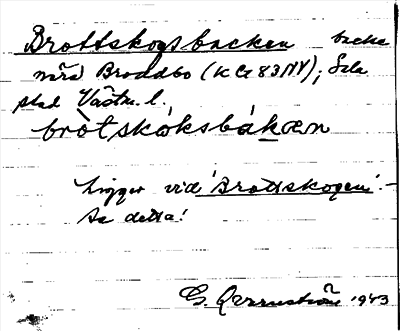 Brottskogsbacken backe
nära Broddbo (KG83NV); Sala
stad Västm. l.
bròtskóksbákæn
Ligger vid 'Brottskogen'.
Se detta!
G. Qvarnström 1943